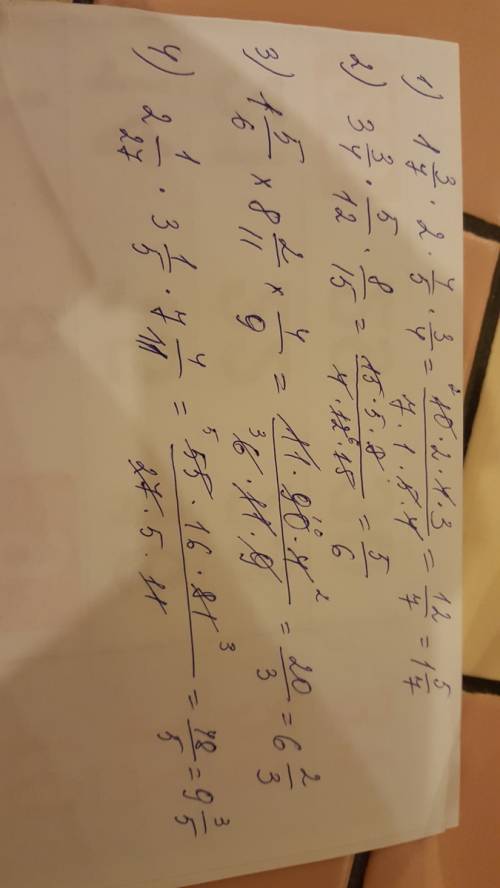 1) 1 3/7 · 2 · 4/5 · 3/4 = ²10 · 2 · 4 · 3 / 7 · 1 · 5 · 4 = 12/7 = 1 5/7
2) 3 3/4 · 5/12 · 8/15 = 15 · 5 · 8 / 4 · 12⁶ · 15 = 5/6
3) 1 5/6 × 8 2/11 × 4/9 = 11 · 90¹⁰ · 4² / ³6 · 11 · 9 = 20/3 = 6 2/3
4) 2 1/27 · 3 1/5 · 7 4/11 = ⁵55 · 16 · 81³ / 27 · 5 · 11 = 48/5 = 9 3/5